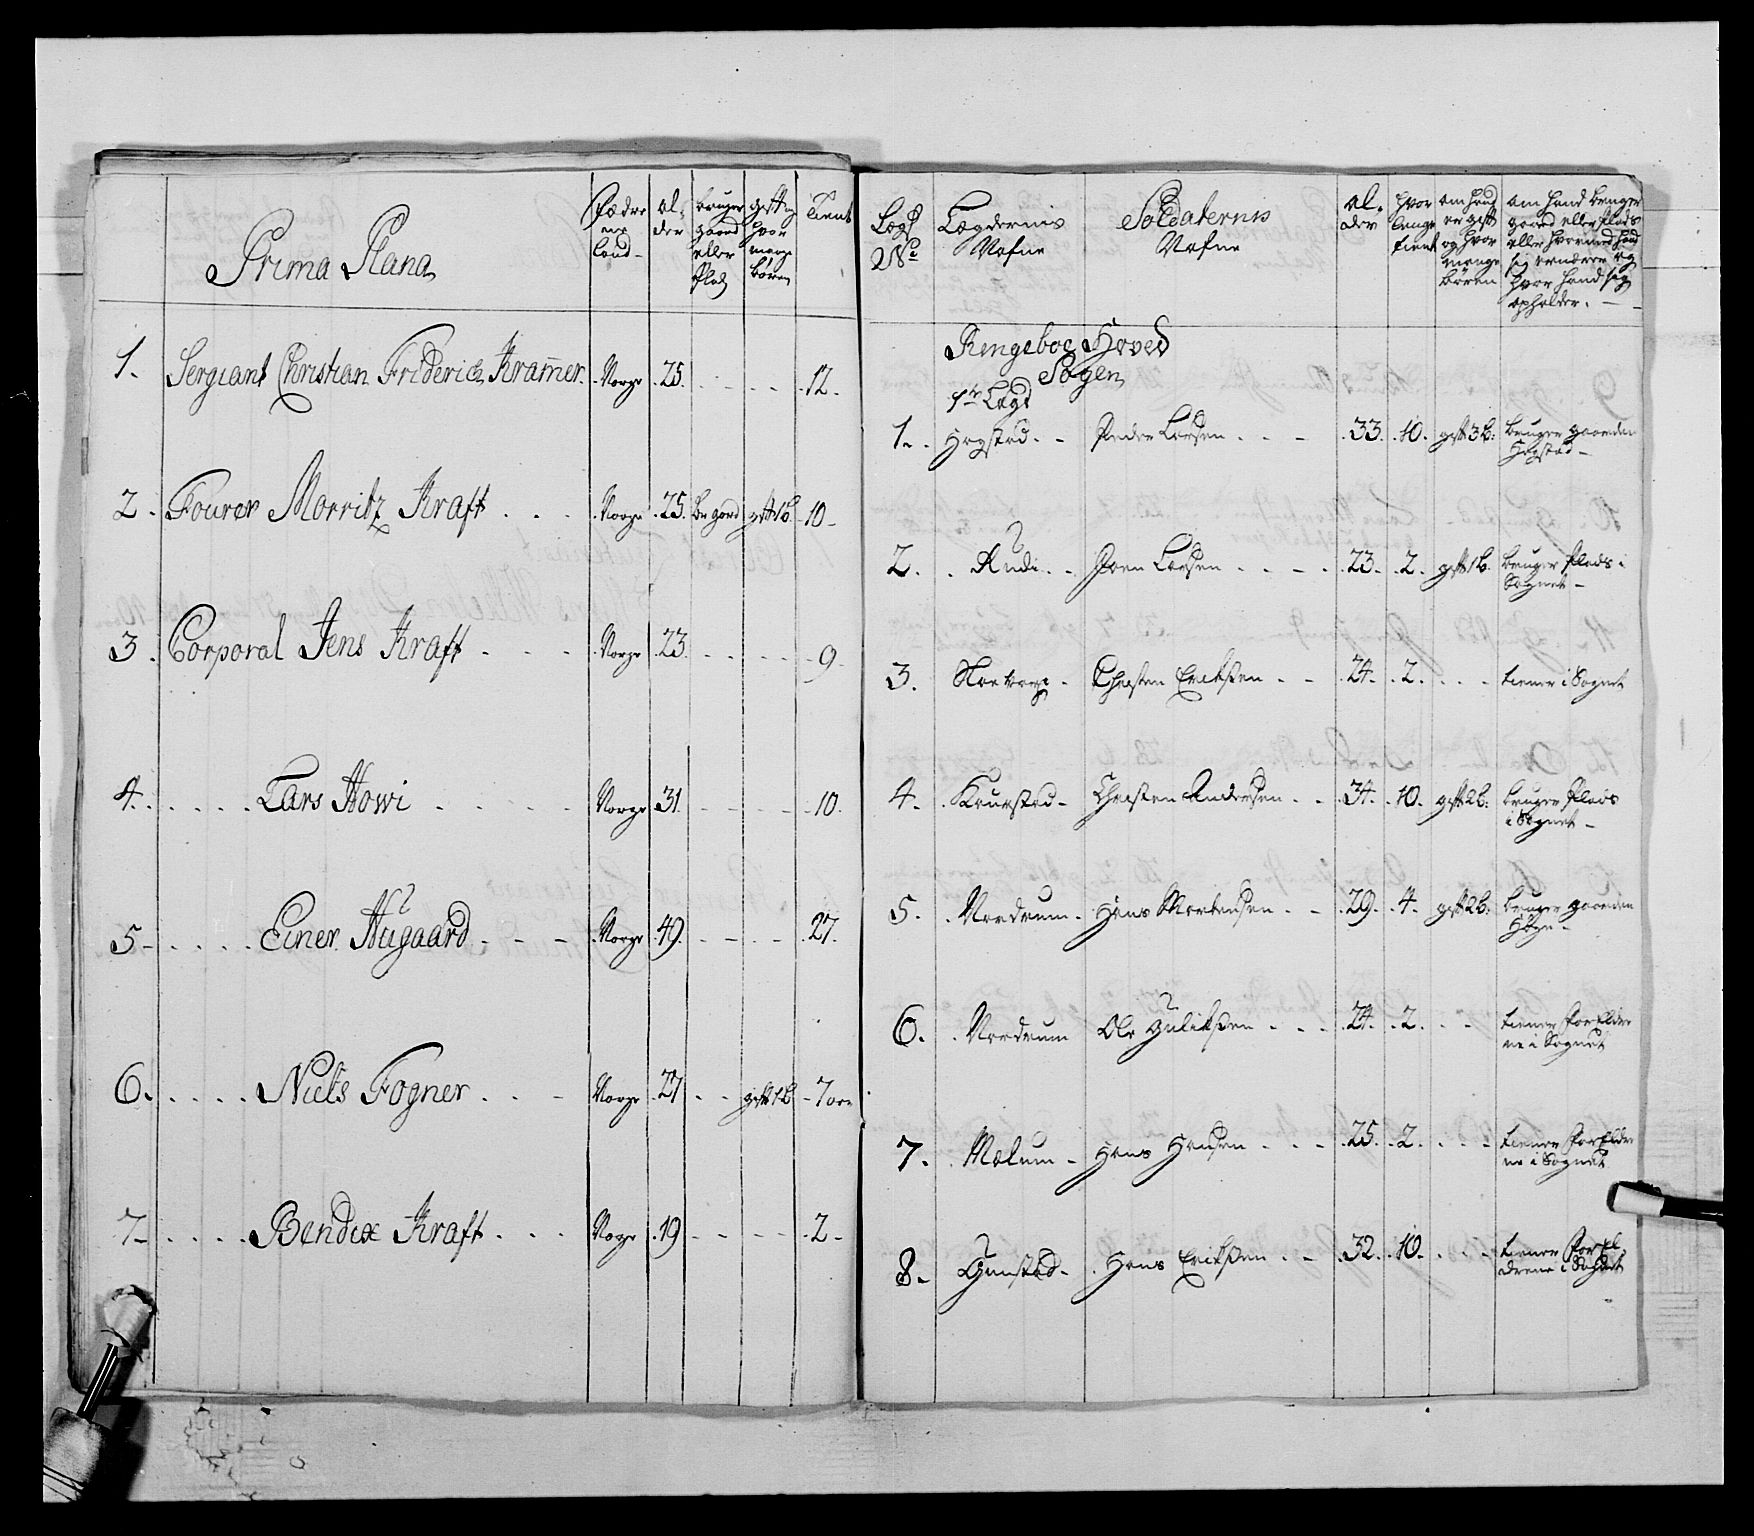 Prima Plana
Fædre
ne
land
al-
der
bruger
gaard
eller
Plads
gift og
hvor
mange
børen
Tient
1. Sergiant Christian Friderich Kramer. Norge 25. - - - - 12.
2. Fourer Morritz Kraft . . . Norge 25. br gord gift 1 b 10.
3. Corporal Jens Kraft . . . Norge 23. - - - - 9.
4. . . . . Lars Howi . . . . . Norge 31. - - - - 10.
5. . . . . Einer Hügaard . - - - Norge 49. - - - - 27.
6. . . . . Niels Fogner . . . Norge 27 - - gift 1 b. 7
7. . . . . Bendix Kraft . . . . Norge 19 - - - - - 2.
Lægd
No
Lægdernis
Nafne
Soldaternis
Nafne
al-
der
hvor
lenge
tient
om hand
er gift
og hvor
mange
børen
om hand bruger
gaard eller Plads
eller hvormed hand
sig ernærer og
hvor hand sig
opholder.
Ringeboe Hoved
Sogen
1te Lægd
1. Hogstad. - Peder Larsen . . - 33. 10. gift 3 b: bruger gaarden
Hogstad
2. Rudi. - Joen Larsen . . - - 23. 2. gift 1 b. bruger Plads i
Sognet
3. - Christen Erichsen . - - 24. 2. . . . tiener i Sognet
4. - Christen Andersen . . 34. 10. gift 2 b. bruger Plads
i Sognet
5. Nordrum. Hans Mortensen . - - 29. 4. gift 2 b: bruger gaarden
6. Nordrum Ole . . . . 24. 2. . . . tiener Forældre
ne i Sognet
7. Mælum - Hans Hansen . . . . 25. 2. . . . tiener Forældre
ne i Sognet
8. Gunstad - Hans Erichsen . . . 32. 10. . . . tiener Foræl-
drene i Sognet